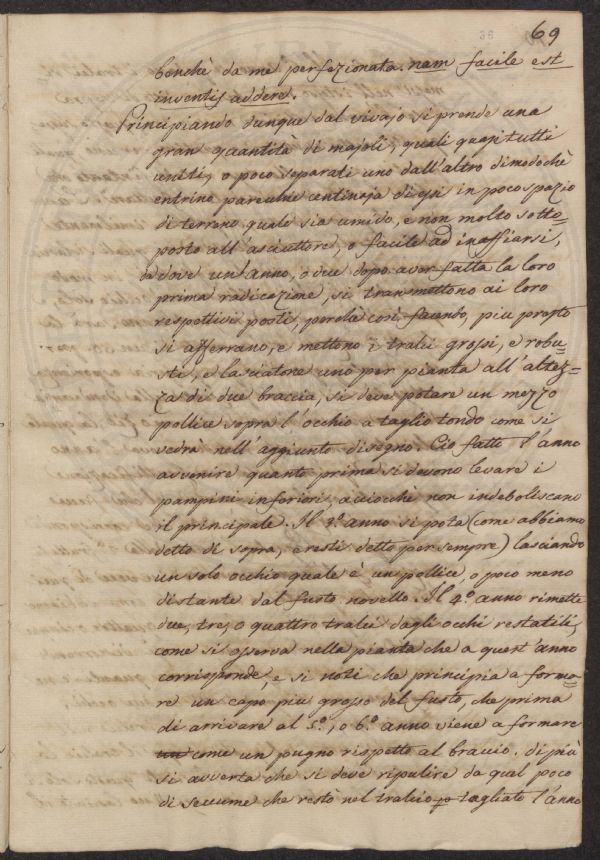 36 69
benchè da me perfezionata. nam facile est
inventis addere.
Principiando dunque dal vivajo si prende una
gran quantità di majoli, quali quasi tutti
uniti, o poco separati uno dall'altro dimodochè
entrino parecchie centinaja di essi in poco spazio
di terreno quale sia umido, e non molto sotto=
posto all'asciuttore, o facile ad inaffiarsi,
da dove un'anno, o due dopo aver fatta la loro
prima radicazione, si transmettono ai loro
respettivi posti, perchè così facendo, più presto
si afferrano, e mettono i tralci grossi, e robu=
sti, e lasciatone uno per pianta all'altez=
za di due braccia, si deve potare un mezzo
pollice sopra l'occhio a taglio tondo come si
vedrà nell'aggiunto disegno. Ciò fatto l'anno
avvenire quanto prima si devono levare i
pampini inferiori, acciocchè non indeboliscano
il principale. Il 3º anno si pota (come abbiamo
detto di sopra, e resti detto per sempre) lasciando
un solo occhio quale è un pollice, o poco meno
distante dal fusto novello. Il 4º anno rimette
due, tre, o quattro tralci dagli occhi restatili,
come si osserva nella pianta che a quest'anno
corrisponde, e si noti che principia a forma=
re un capo più grosso del fusto, che prima
di arrivare al 5º, o 6º anno viene a formare
come un pugno rispetto al braccio. di più
si avverta che si deve ripulire da quel poco
di seccume che restò nel tralcio tagliato l'anno